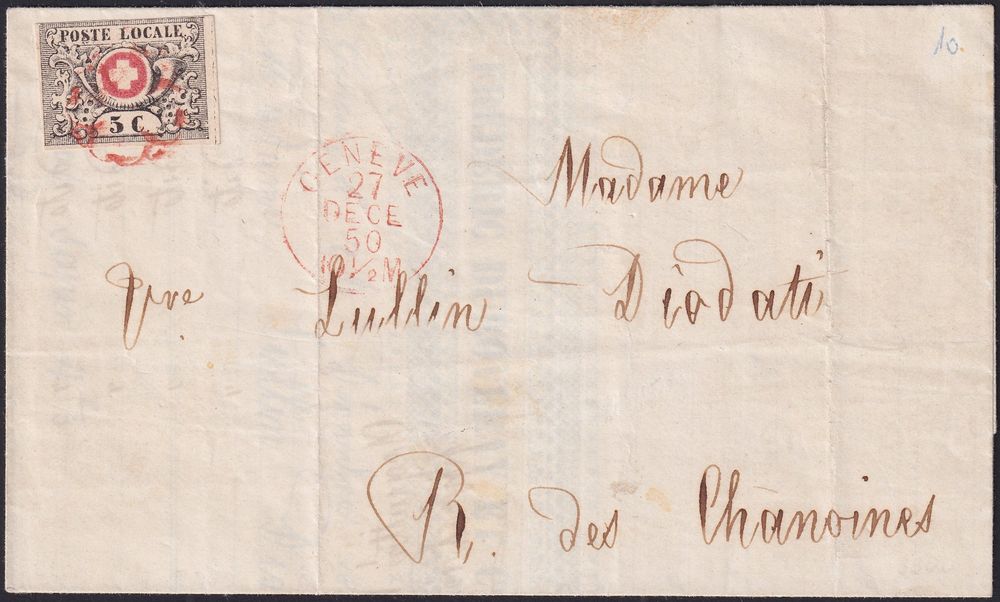 POSTE LOCALE
5 C.
10.
GENEVE
27
DECE
50
10 1/2 M
Madame
Vve Lullin Diodati
R. des Chanoines